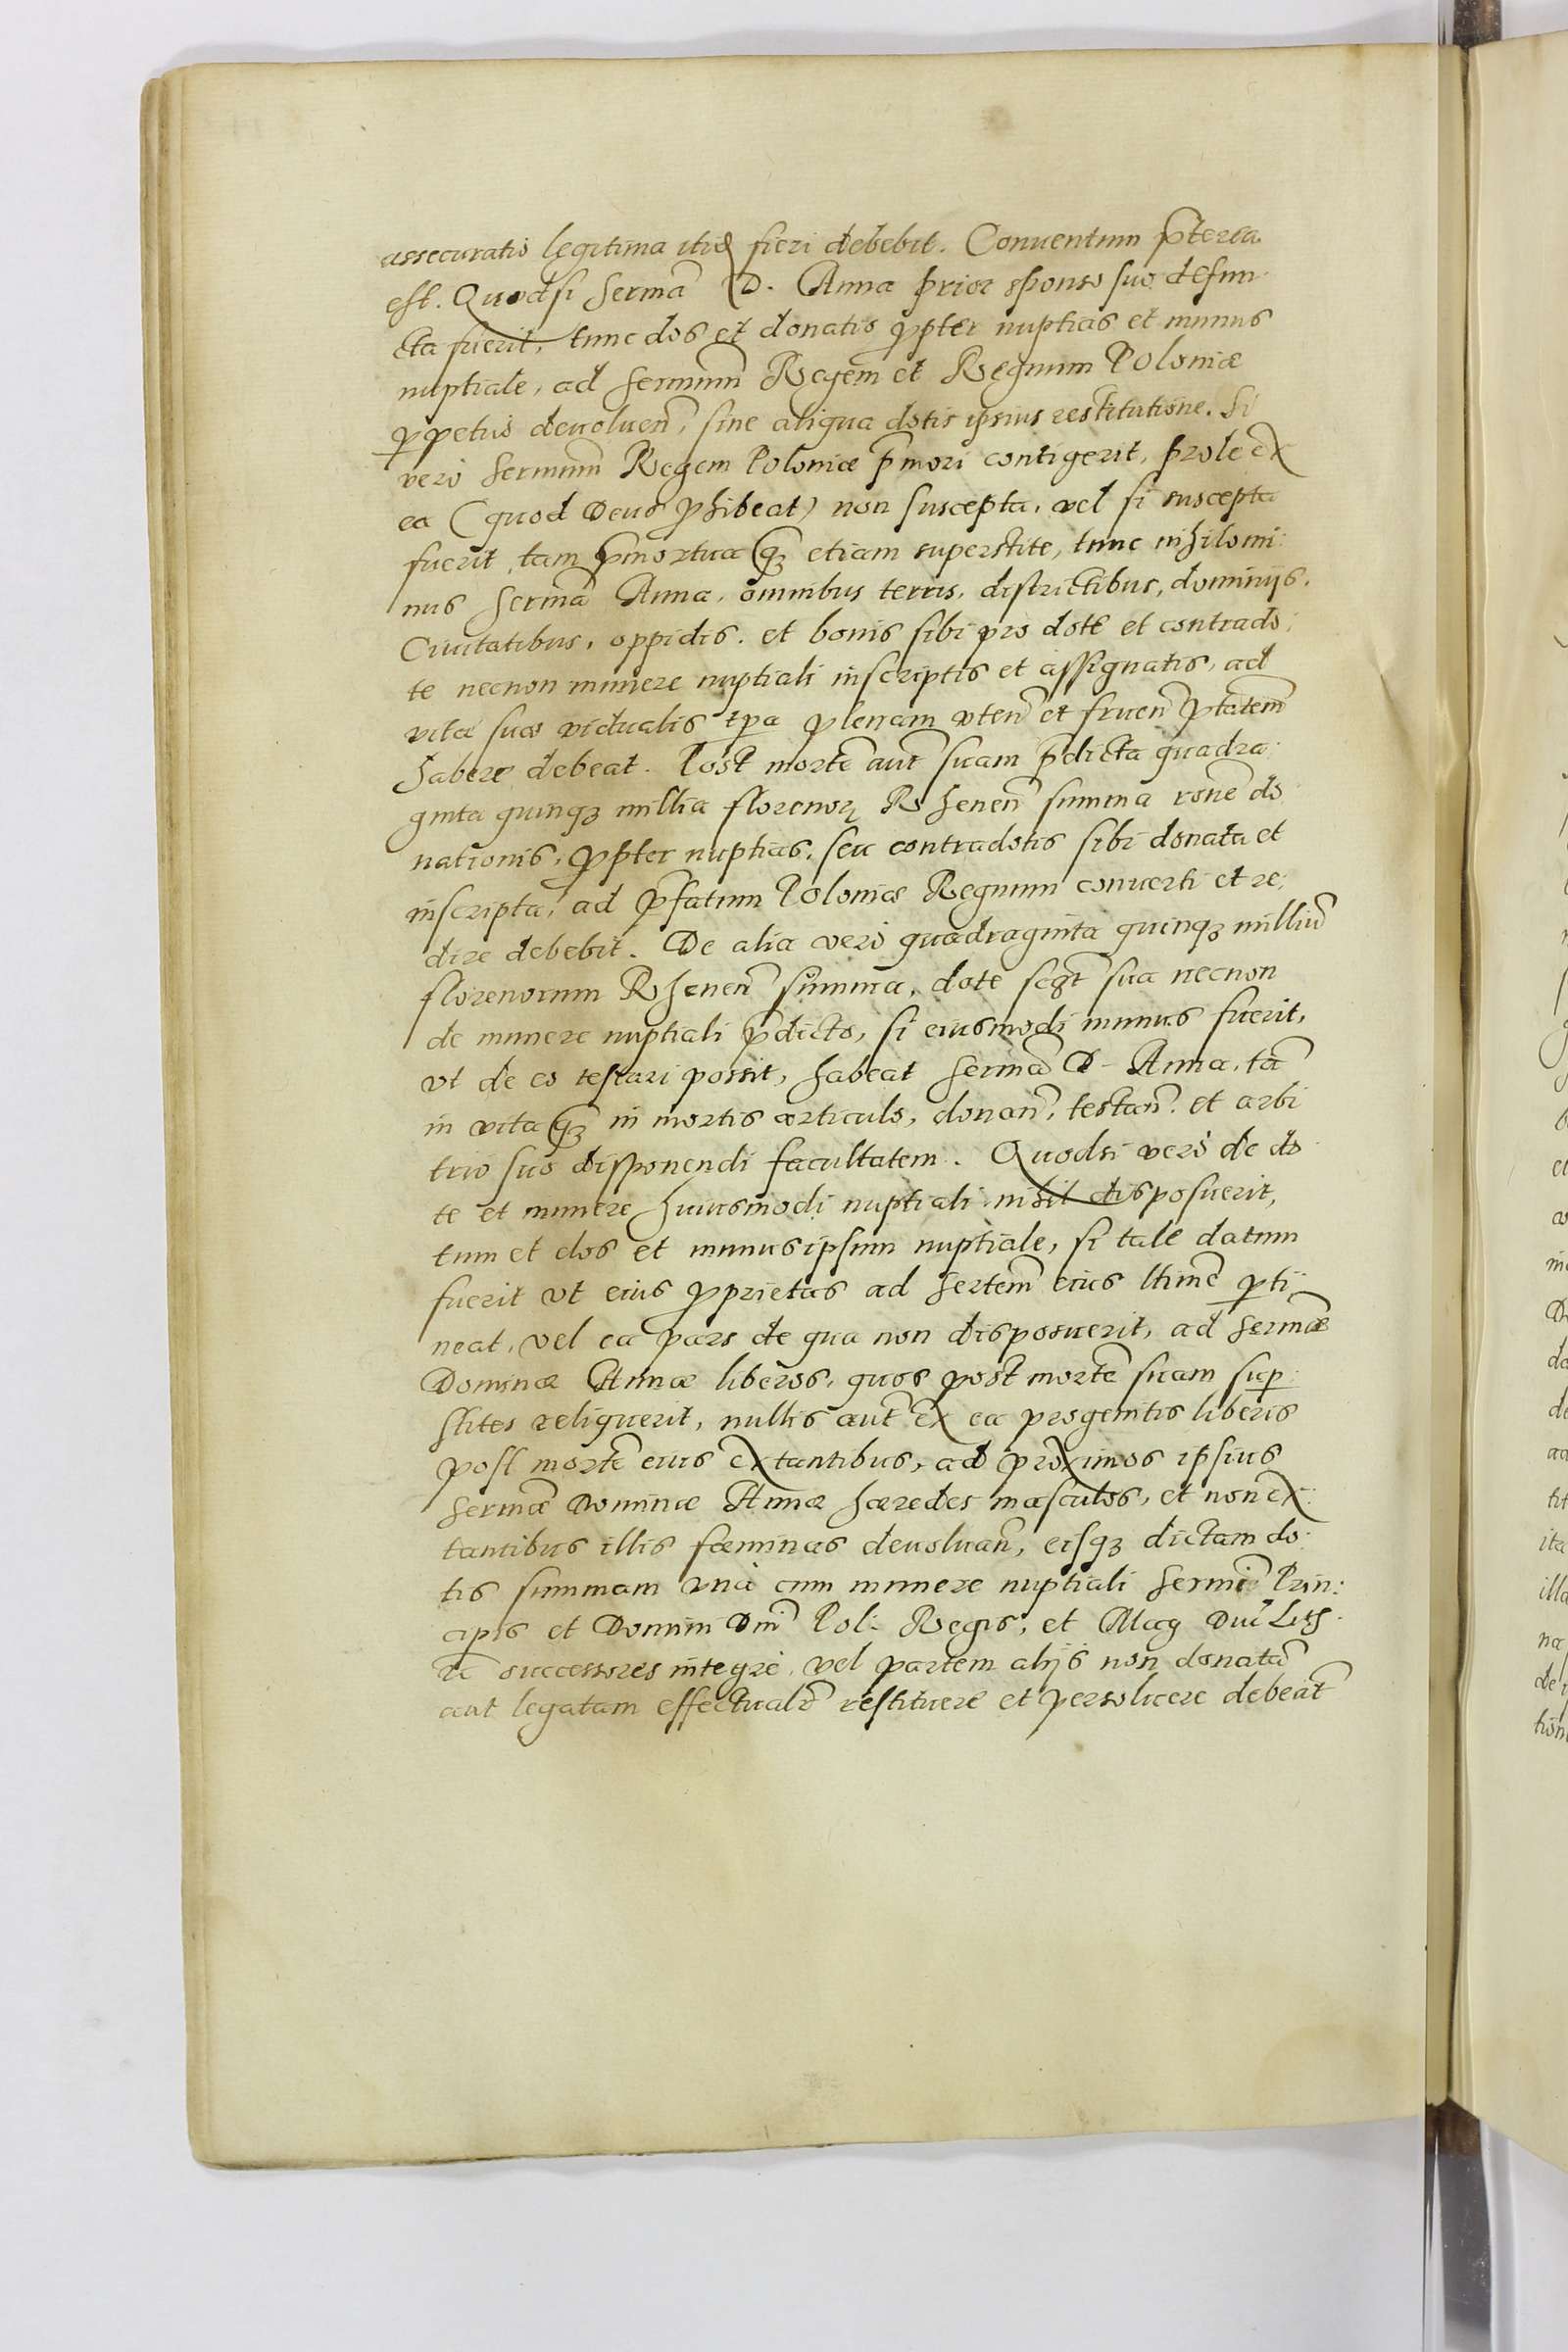 assecuratio legitima itid fieri debebit. Conuentum p̃terea
est. Quodsi Serma͠ D. Anna prior sponso suo defun-
cta fuerit, tunc dos et donatio ꝓpter nuptias et munus
nuptiale, ad Sermum͠ Regem et Regnum Poloniæ
ꝑpetuo deuoluen͠, sine aliqua dotis ipsius restitutione. Si
vero Sermum͠ Regem Poloniæ p̃mori contigerit, prole ex
ea (quod Deus ꝓhibeat) non suscepta, vel si suscepta
fuerit, tam p̃mortua qꝫ etiam superstite, tunc nihilomi:
nus Serma͠ Anna, omnibus terris, districtibus, dominijs,
Ciuitatibus, oppidis, et bonis sibi pro dote et contrado:
te necnon munere nuptiali inscriptis et assignatis, ad
vitæ suæ vidualis tp̃a plenam vten͠ et fruen͠ p̃tatem͠
habere debeat. Post morte͠ aut͠ suam p̃dicta quadra:
ginta quinqꝫ millia florenoꝝ Rhenen͠ summa rone͠ do
nationis, ꝓpter nuptias, seu contradotis sibi donata et
inscripta, ad p̃fatum Poloniæ Regnum conuerti et re:
dire debebit. De alia vero quadraginta quinqꝫ milliu͠
florenorum Rhenen͠ summa, dote sczt͠ sua necnon
de munere nuptiali p̃dicto, si eiusmodi munus fuerit,
vt de eo testari possit, habeat Serma͠ D. Anna, ta͠
in vita qꝫ in mortis articulo, donan͠, testan͠, et arbi
trio suo disponendi facultatem. Quodsi vero de do
te et munere huiusmodi nuptiali nihil disposuerit,
tum et dos et munus ipsum nuptiale, si tale datum
fuerit vt eius ꝓprietas ad Sertem͠ eius ltime͠ ꝑti:
neat, vel ea pars de qua non disposuerit, ad Sermæ͠
Dominæ Annæ liberos, quos post morte͠ suam suꝑ:
stites reliquerit, nullis aut͠ ex ea progenitis liberis
post morte͠ eius extantibus, ad proximos ipsius
Sermæ͠ Dominæ Annæ hæredes masculos, et non ex:
tantibus illis fæminas deuoluan͠, eisqꝫ dictam do:
tis summam vna cum munere nuptiali Sermi͠ Prin:
cipis et Domini Dni͠ Pol: Regis, et Mag Duc͠ Lith
rc͠ successores integre, vel partem alijs non donata͠
aut legatam effectualr͠ restituere et persoluere debeat͠